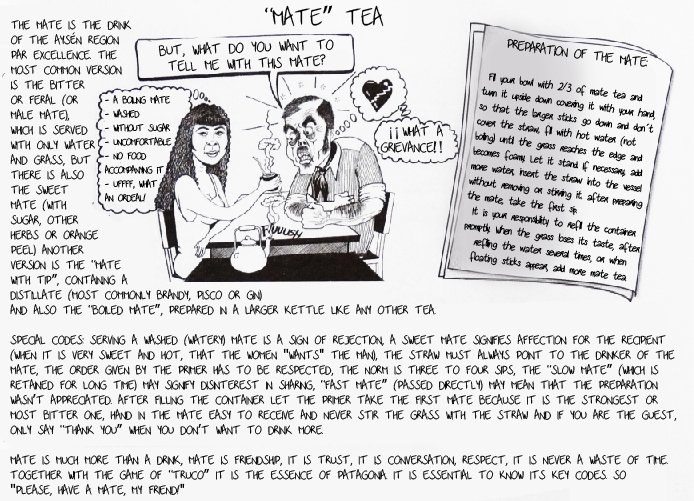 "MATE" TEA
THE MATE IS THE DRINK
OF THE AYSÉN REGION
PAR EXCELLENCE. THE
MOST COMMON VERSION
IS THE BITTER
OR FERAL (OR
MALE MATE),
WHICH IS SERVED
WITH ONLY WATER
AND GRASS, BUT
THERE IS ALSO
THE SWEET
MATE (WITH
SUGAR, OTHER
HERBS OR ORANGE
PEEL) ANOTHER
VERSION IS THE "MATE
WITH TIP", CONTANING A
DISTILLATE (MOST COMMONLY BRANDY, PISCO OR GIN)
AND ALSO THE "BOILED MATE", PREPARED IN A LARGER KETTLE LIKE ANY OTHER TEA.
BUT, WHAT DO YOU WANT TO
TELL ME WITH THIS MATE?
- A BOILING MATE
- WASHED
- WITHOUT SUGAR
- UNCOMFORTABLE
- NO FOOD
ACCOMPANING IT
- UFFFF, WHAT
AN ORDEAL!
¡¡WHAT A
GRIEVANCE!!
FUUUSY
PREPARATION OF THE MATE
Fill your bowl with 2/3 of mate tea and
turn it upside down covering it with your hand,
so that the larger sticks go down and don't
cover the straw, fill with hot water (not
boiling) until the grass reaches the edge and
becomes foamy. Let it stand if necessary, add
more water, insert the straw into the vessel
without removing or stirring it. after preparing
the mate, take the first sip.
It is your responsibility to refill the container
promptly when the grass loses its taste, after
refilling the water several times, or when
floating sticks appear, add more mate tea
SPECIAL CODES: SERVING A WASHED (WATERY) MATE IS A SIGN OF REJECTION, A SWEET MATE SIGNIFIES AFFECTION FOR THE RECIPIENT
(WHEN IT IS VERY SWEET AND HOT, THAT THE WOMEN "WANTS" THE MAN), THE STRAW MUST ALWAYS POINT TO THE DRINKER OF THE
MATE, THE ORDER GIVEN BY THE PRIMER HAS TO BE RESPECTED, THE NORM IS THREE TO FOUR SIPS, THE "SLOW MATE" (WHICH IS
RETAINED FOR LONG TIME) MAY SIGNIFY DISINTEREST IN SHARING, "FAST MATE" (PASSED DIRECTLY) MAY MEAN THAT THE PREPARATION
WASN'T APPRECIATED. AFTER FILLING THE CONTAINER LET THE PRIMER TAKE THE FIRST MATE BECAUSE IT IS THE STRONGEST OR
MOST BITTER ONE, HAND IN THE MATE EASY TO RECEIVE AND NEVER STIR THE GRASS WITH THE STRAW AND IF YOU ARE THE GUEST,
ONLY SAY "THANK YOU" WHEN YOU DON'T WANT TO DRINK MORE.
MATE IS MUCH MORE THAN A DRINK, MATE IS FRIENDSHIP, IT IS TRUST, IT IS CONVERSATION, RESPECT, IT IS NEVER A WASTE OF TIME.
TOGETHER WITH THE GAME OF "TRUCO" IT IS THE ESSENCE OF PATAGONIA. IT IS ESSENTIAL TO KNOW ITS KEY CODES. SO
"PLEASE, HAVE A MATE, MY FRIEND!"